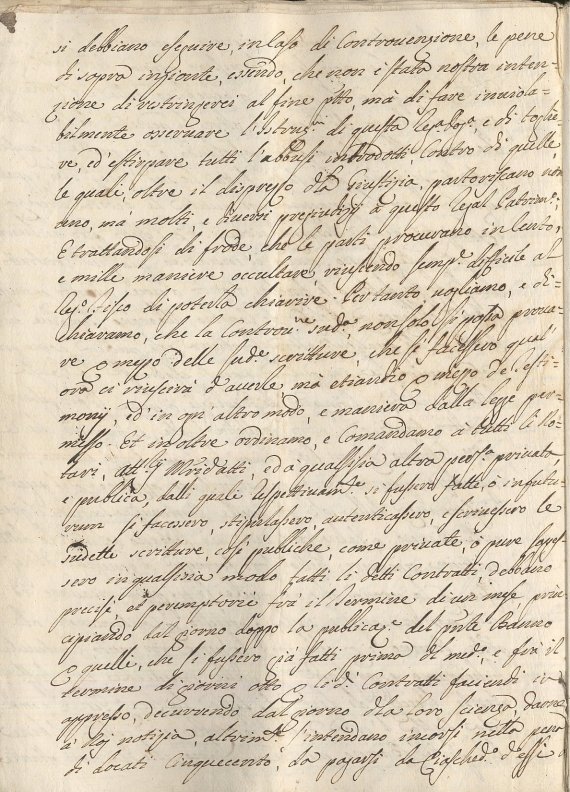 si debbiano eseguire, in caso di Controvenzione, le pene
di sopra ingionte, essendo, che non è stata nostra inten-
zione di restringerci al fine ptto, mà di fare inviola-
bilmente osservare l'Istruz.i di questa Reg.a Dog.a e di toglie-
re, ed'estirpare tutti l'abbusi introdotti Contro di quelle,
le quali, oltre il disprezzo d'la Giustizia, partoriscano non
uno, mà molti, e diversi pregiudizij à questo Real Patrim.o;
E trattandosi di frode, che le parti procurano in cento,
e mille maniere occultare, riuscendo semp.e difficile al
Reg.o Fisco di poterla chiarire. Per tanto vogliamo, e di-
chiaramo, che la Controv.ne sud.a non solo si possa prova-
re p mezzo delle sud.e scritture, che si facessero qual
ora ci riuscirà d'averle mà etiandio p mezo de testi-
monij, ed' in ogn' altro modo, e maniera dalla legge per-
messo. Et in oltre ordinamo, e Comandamo à tutti li No-
tari, Att.rij M'rid'atti, ed à qualsisia altra pers.a privata
e publica, dalli quali respettivam.te si fussero fatte, ò in futu-
rum si facessero, stipulassero, autenticassero, e scrivessero le
sudette scritture, così publiche come private, ò pure sapes-
sero in qualsisia modo fatti li detti Contratti, debbano
precisè, et peremptoriè frà il termine di un mese prin-
cipiando dal giorno doppo la publicaz.e del pnte Banno
p quelli, che si fussero già fatti prima di med.o, e frà il
termine di giorni otto p li d.i Contratti faciendi in
appresso, decurrendo dal giorno d'la loro scienza, darne
à Noj notizia, altrim.ti s'intendano incorsi nella pena
di docati Cinquecento, da pagarsi da Ciasched.o d'essi